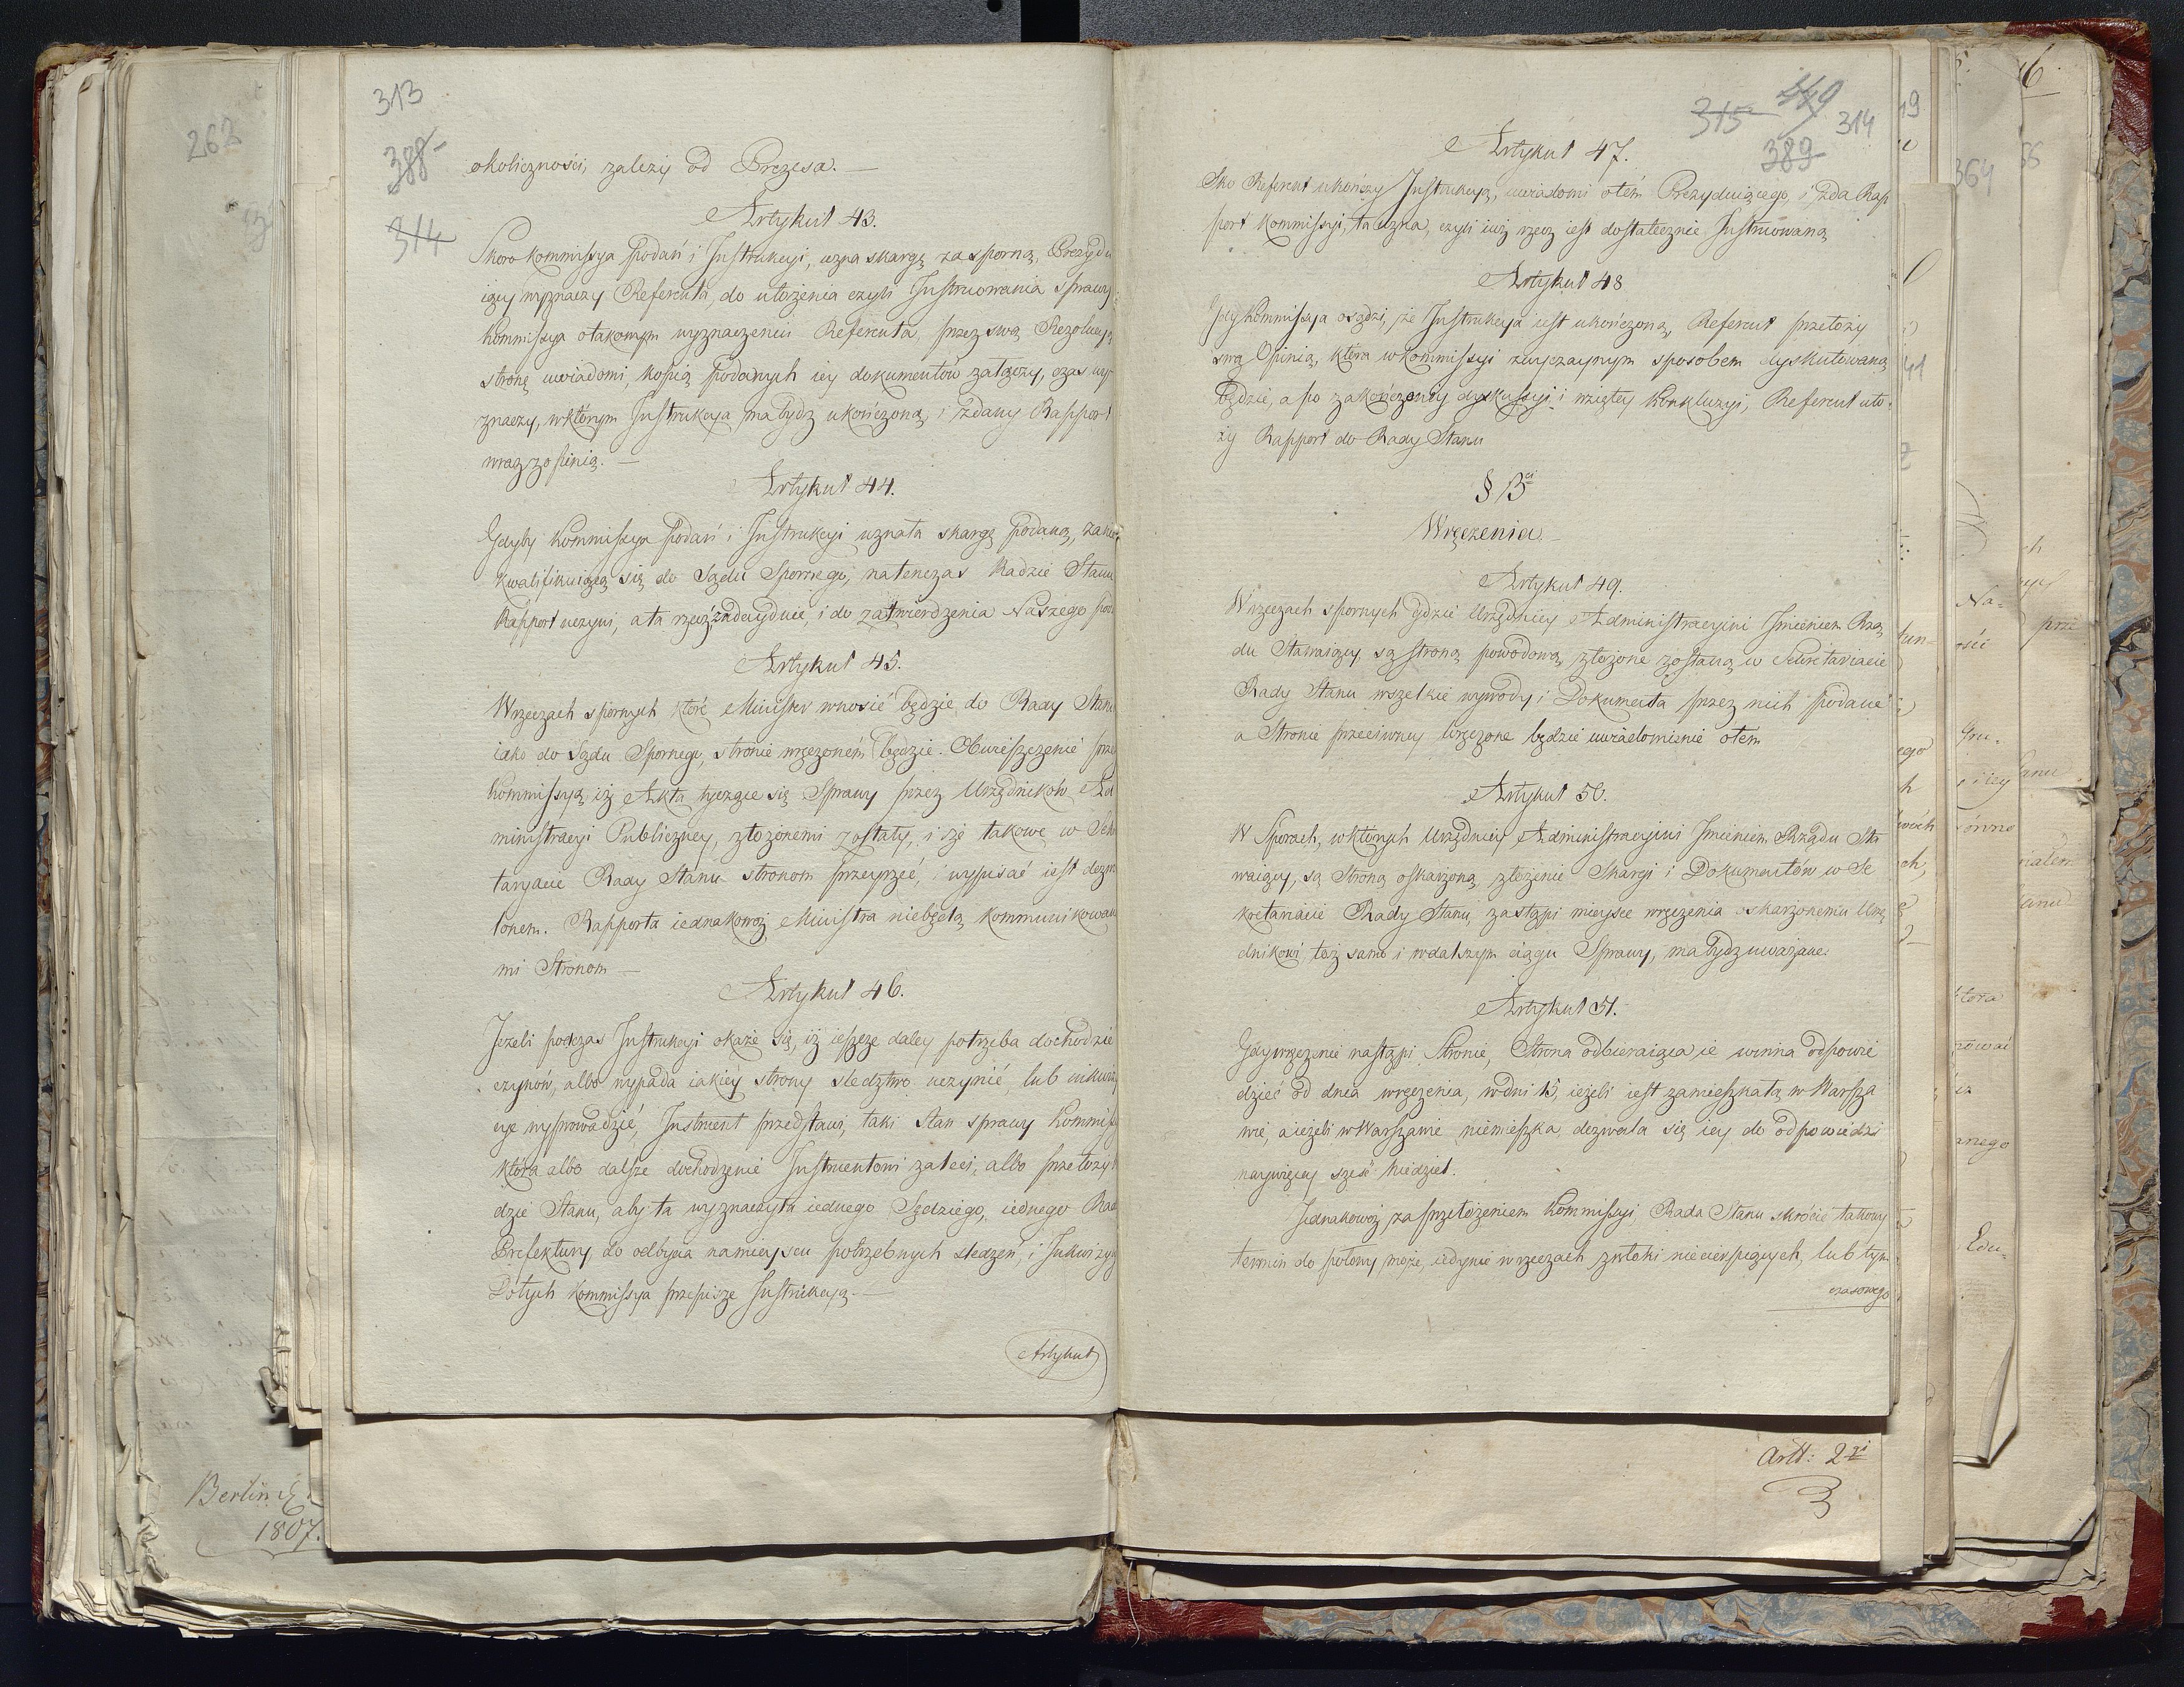 313
388
314
okoliczności, zależy od Prezesa. —
Artykuł 43.
Skoro Kommissya Podań i Instrukcyi, uzna skargę za sporną, Prezydu
iący wyznaczy Referenta do ułożenia czyli Instruowania sprawy
Kommissya otakowym wyznaczeniu Referenta, przez swą Rezolucyą
stronę uwiadomi, kopią podanych iey dokumentów załączy, czas wy-
znaczy, wktórym Instrukcya ma bydz ukończoną, i zdany Rapport
wraz zopinią. —
Artykuł 44.
Gdyby Kommissya Podań i Instrukcyi uznała skargę podaną, za nie
kwalifikuiącą się do Sądu Spornego, natenczas Radzie Stanu
Rapport uczyni, a ta rzecz zadecyduie, i do zatwierdzenia Naszego poda
Artykuł 45.
Wrzeczach spornych które Minister wnosić będzie do Rady Stanu
iako do Sądu Spornego, stronie wręczoném będzie Obwieszczenie przez
Kommissyą iż Akta tyczące się Sprawy przez Urzędników Ad
ministracyi Publiczney, złożonemi zostały, i że takowe w Sekre
taryacie Rady Stanu stronom przeyrzeć, i wypisać iest dozwo
lonem. Rapporta iednakowoż Ministra niebędą kommunikowane
mi Stronom —
Artykuł 46.
Jeżeli podczas Instrukcyi okaże się, iż ieszcze daley potrzeba dochodzić
czynów, albo wypada iakiey strony śledztwo uczynić, lub inkwizy
cye wyprowadzić, Instruent przedstawi, taki stan sprawy Kommissyi
która albo dalsze dochodzenie Instruentowi zaleci, albo przełoży Ra
dzie Stanu, aby ta wyznaczyła iednego Sędziego, iednego Radcę
Prefektury, do odbycia namieyscu potrzebnych śledzeń, i Inkwizycyi
Dotych Kommissya przepisze Instrukcyą. —
Artykuł
315 449 314
389
Artykuł 47.
Sko Referent ukończy Instrukcyą, uwiadomi otém Prezyduiącego, i zda Rap
port Kommissyi, ta uzna, czyli iuż rzecz iest dostatecznie Instruowaną
Artykuł 48
Gdy Kommissya osądzi, że Instrukcya iest ukończoną, Referent przełoży
swą Opinią, która wkommissyi zwyczaynym sposobem dyskutowaną
będzie, a po zakończoney dyskussyi i wziętey konkluzyi, Referent uło-
ży Rapport do Rady Stanu
§ 3ci
Wręczenia —
Artykuł 49.
Wrzeczach spornych gdzie Urzędnicy Administracyini Imieniem Rzą
du Stawaiący, są stroną powodową, złożone zostaną w Sekretariacie
Rady Stanu wszelkie wywody i Dokumenta przez nich podane
a Stronie przeciwney wręczone będzie uwiadomienie otem
Artykuł 50.
W Sporach, wktórych Urzędnicy Administracyini Imieniem Rządu Sta
waiący, są Stroną oskarżoną, złożenie Skargi i Dokumentów w Se
kretariacie Rady Stanu, zastąpi mieysce wręczenia oskarżonemu Urzę
dnikowi, toż samo i wdalszym ciągu Sprawy, ma bydz uważane.
Artykuł 51.
Gdy wręczenie nastąpi Stronie, Strona odbieraiąca ie winna odpowie
dzieć od dnia wręczenia, wdni 15, ieżeli iest zamieszkałą w Warsza
wie, a ieżeli w Warszawie niemieszka, dozwala się iey do odpowiedzi
naywięcey sześć Niedziel.
Jednakowoż, za przełożeniem Kommissyi, Rada Stanu skrócić takowy
termin do połowy może, iedynie wrzeczach zwłoki niecierpiących, lub tym
czasowego
Artt: 2gi
262
Berlin d.
1807.
364